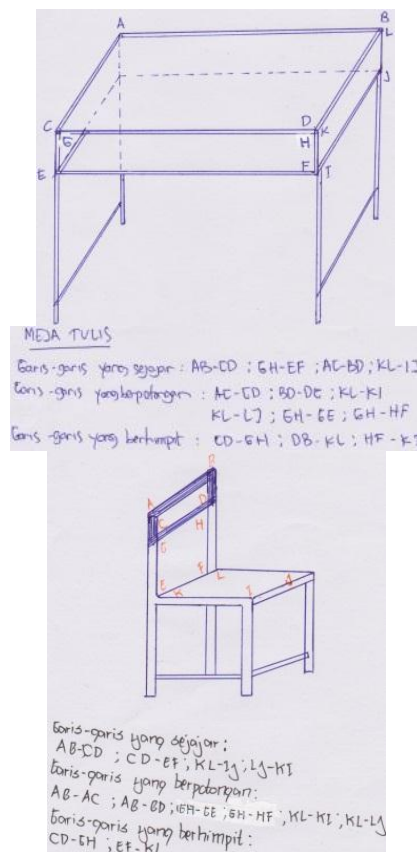 A
B
L
J
C
G
D
K
H
E
F
I
MEJA TULIS
Garis-garis yang sejajar : AB-CD ; GH-EF ; AC-BD ; KL-IJ
Garis-garis yang berpotongan : AC-CD ; BD-DC ; KL-KI
KL-LJ ; GH-GE ; GH-HF
Garis-garis yang berhimpit : CD-GH ; DB-KL ; HF-KI
B
A
D
C
H
G
F
L
E
K
I
J
Garis-garis yang sejajar :
AB-CD ; CD-EF ; KL-IJ ; LJ-KI
Garis-garis yang berpotongan :
AB-AC ; AB-BD ; GH-GE ; GH-HF ; KL-KI ; KL-LJ
Garis-garis yang berhimpit :
CD-GH ; EF-KL